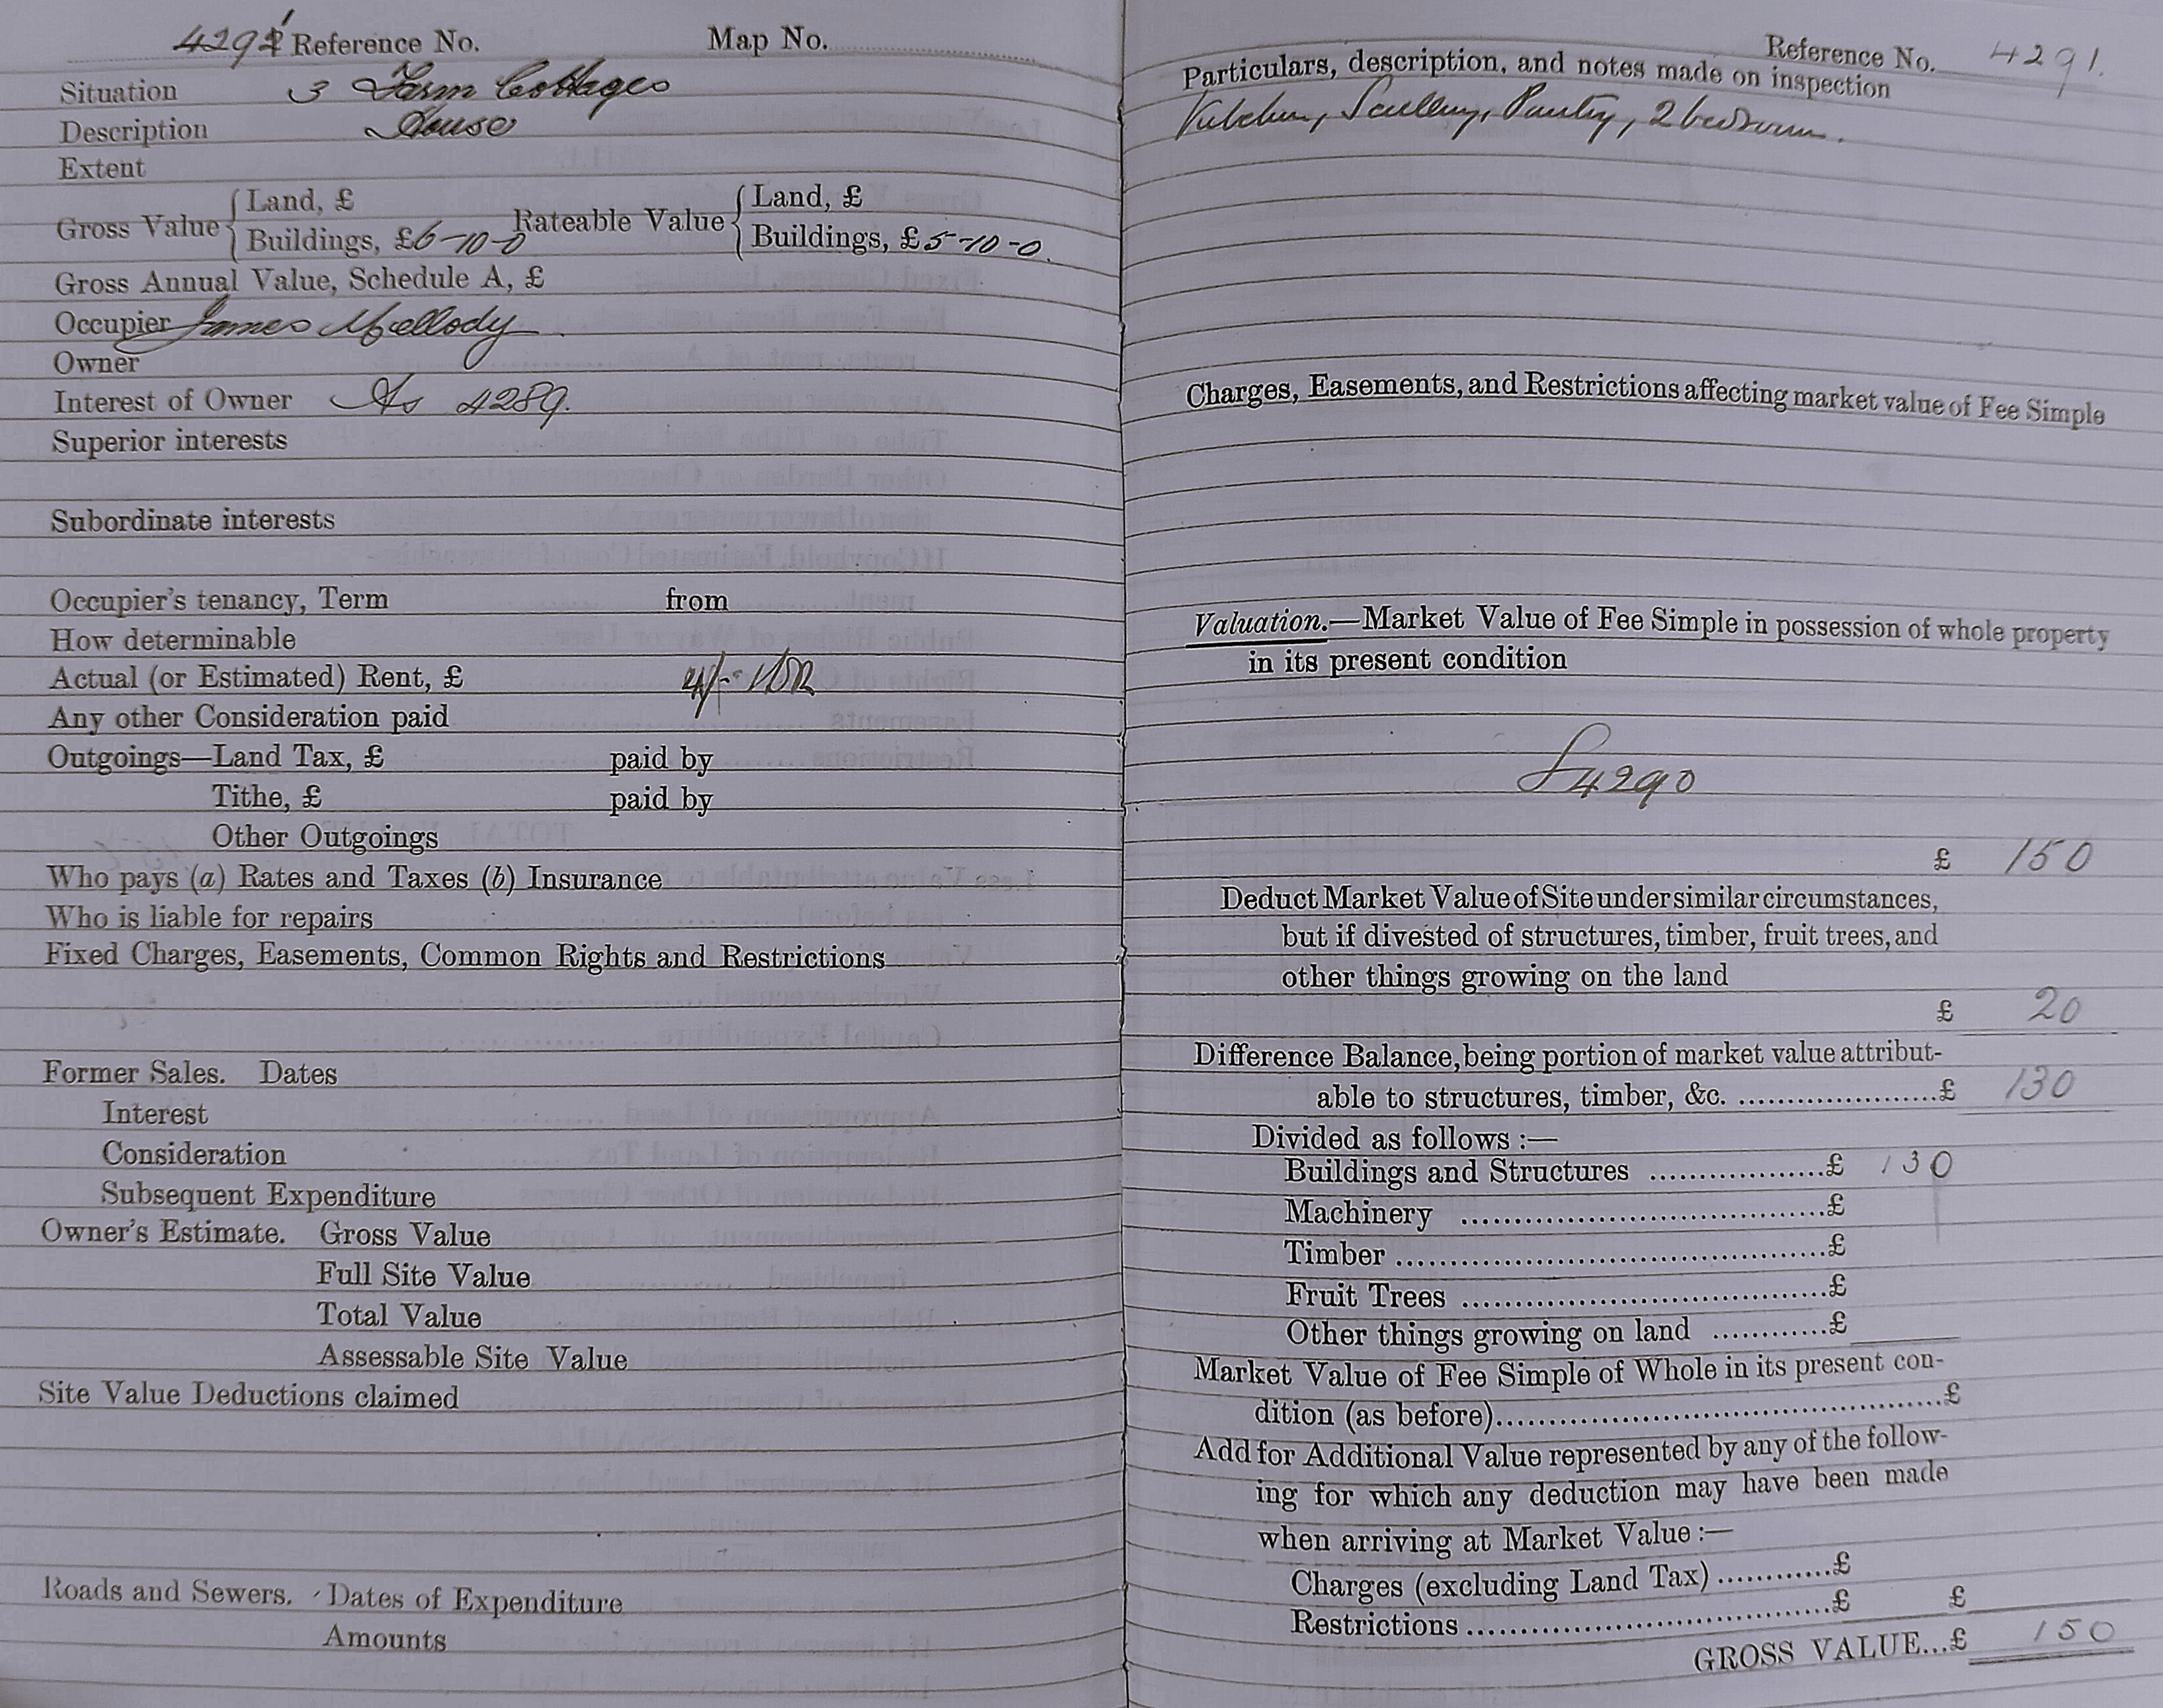 4291 Reference No. Map No.
Situation 3 Farm Cottages
Description House
Extent
Gross Value { Land, £
Buildings, £6-10-0
Rateable Value { Land, £
Buildings, £5-10-0.
Gross Annual Value, Schedule A, £
Occupier James
Owner
Interest of Owner As 4289.
Superior interests
Subordinate interests
Occupier's tenancy, Term from
How determinable
Actual (or Estimated) Rent, £
Any other Consideration paid
Outgoings—Land Tax, £ paid by
Tithe, £ paid by
Other Outgoings
Who pays (a) Rates and Taxes (b) Insurance
Who is liable for repairs
Fixed Charges, Easements, Common Rights and Restrictions
Former Sales. Dates
Interest
Consideration
Subsequent Expenditure
Owner's Estimate. Gross Value
Full Site Value
Total Value
Assessable Site Value
Site Value Deductions claimed
Roads and Sewers. Dates of Expenditure
Amounts
Reference No. 4291.
Particulars, description, and notes made on inspection
Kitchen, Scullery, Pantry, 2 bedrooms.
Charges, Easements, and Restrictions affecting market value of Fee Simple
Valuation.—Market Value of Fee Simple in possession of whole property
in its present condition
4290
£ 150
Deduct Market Value of Site under similar circumstances,
but if divested of structures, timber, fruit trees, and
other things growing on the land
£ 20
Difference Balance, being portion of market value attribut-
able to structures, timber, &c. ......................£ 130
Divided as follows :—
Buildings and Structures ................£ 130
Machinery ...................................£
Timber ..........................................£
Fruit Trees ...................................£
Other things growing on land ............£
Market Value of Fee Simple of Whole in its present con-
dition (as before)...........................................£
Add for Additional Value represented by any of the follow-
ing for which any deduction may have been made
when arriving at Market Value :—
Charges (excluding Land Tax) ............£
Restrictions ...................................£ £
GROSS VALUE...£ 150